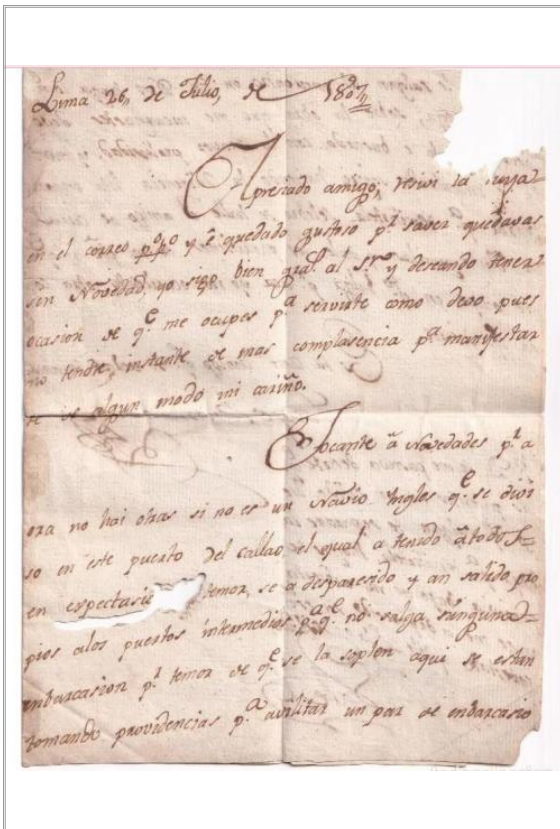 Lima 26, de Julio, de 1807
Apresiado amigo; resivi la suya
en el correo pº pº y é quedado gustoso pr saver quedavas
sin Novedad, yo sigo bien gras. al Sr. y deseando tener
ocasion de qe me ocupes pa servirte como devo pues
no tendre, instante de mas complasencia pa manifestar
te de algun modo mi cariño.
Tocante â Novedades pr a
ora no hai otras si no es un Navio Ingles qe se divi
so en este puerto del callao, el qual a tenido â todos
en espectasio temor, se a desparesido y an salido pro
pios alos puertos intermedios pa qe no salga ninguna
enbarcasion pr temor de qe se la soplen aqui se estan
tomando providencias pa avilitar un par de enbarcasio